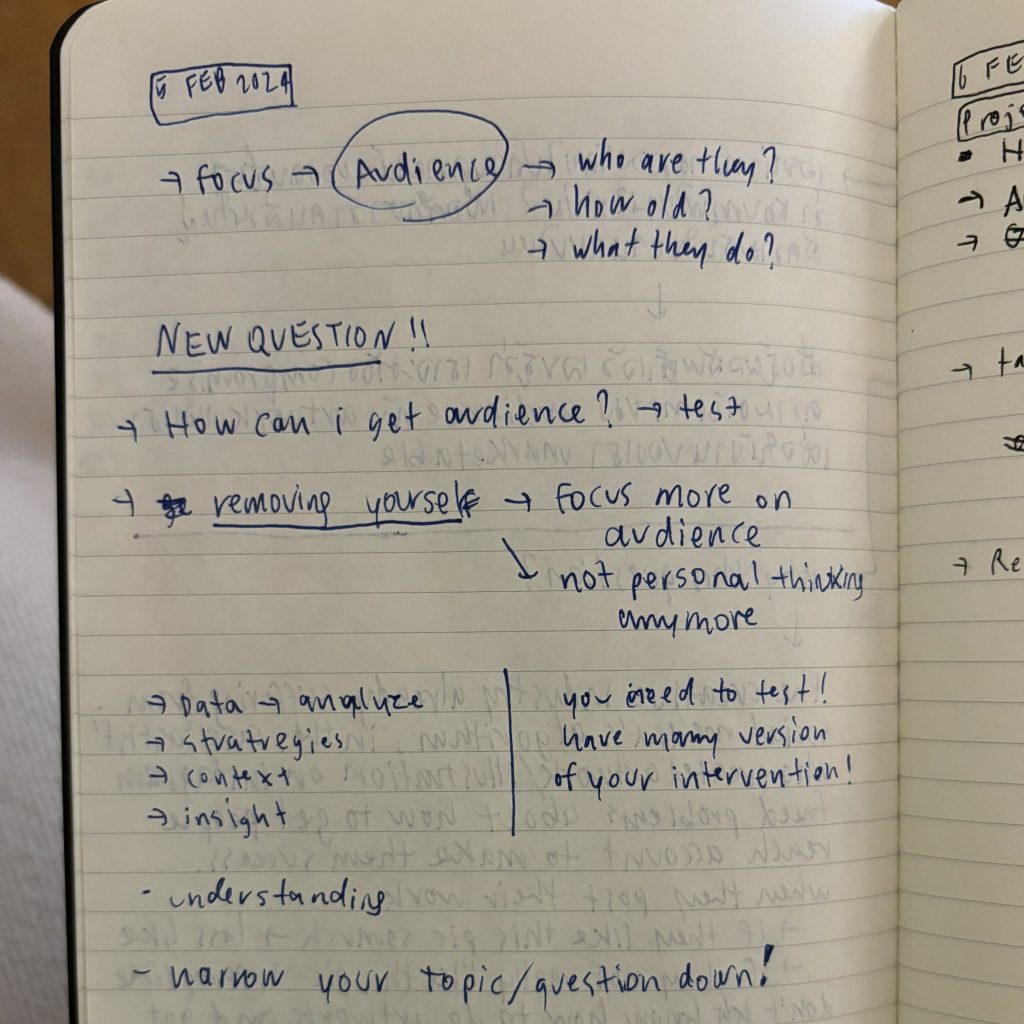 5 FEB 2024
→ focus → Audience → who are they?
→ how old?
→ what they do?
NEW QUESTION!!
→ How can i get audience? → test
→ removing yourself → focus more on
audience
↘ not personal thinking
anymore
→ Data → analyze
→ stratregies
→ context
→ insight
you need to test!
have many version
of your intervention!
- understanding
- narrow your topic/question down!
6 FE
Proj
• H
→ A
→
→
→ Re